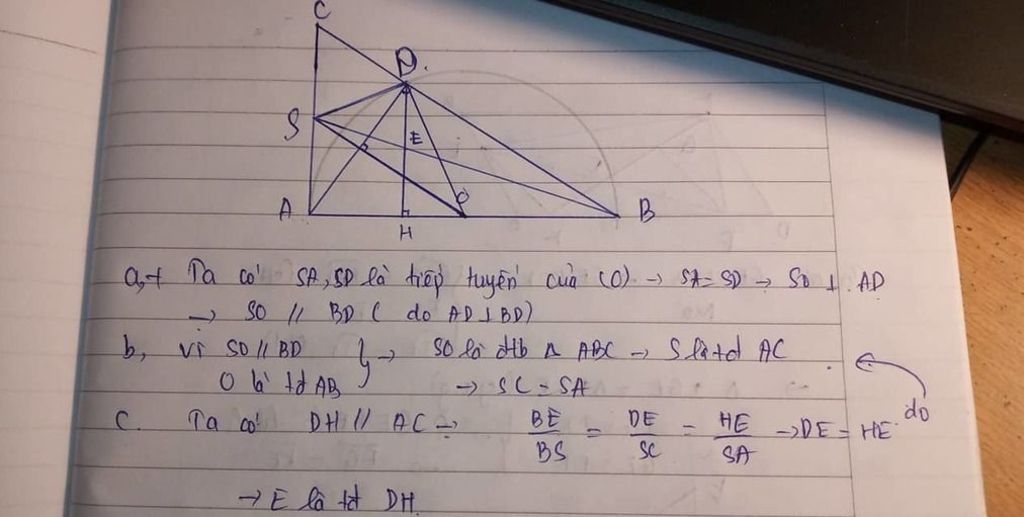 C
D.
S
E
A
O
B
H
a, + Ta có SA, SD là tiếp tuyến của (O) → SA = SD → SO ⊥ AD
→ SO // BD ( do AD ⊥ BD)
b, Vì SO // BD } → SO là đtb Δ ABC → S là tđ AC
O là tđ AB → SC = SA
do
C. Ta có DH // AC → BE/BS = DE/SC = HE/SA → DE = HE
→ E là tđ DH.